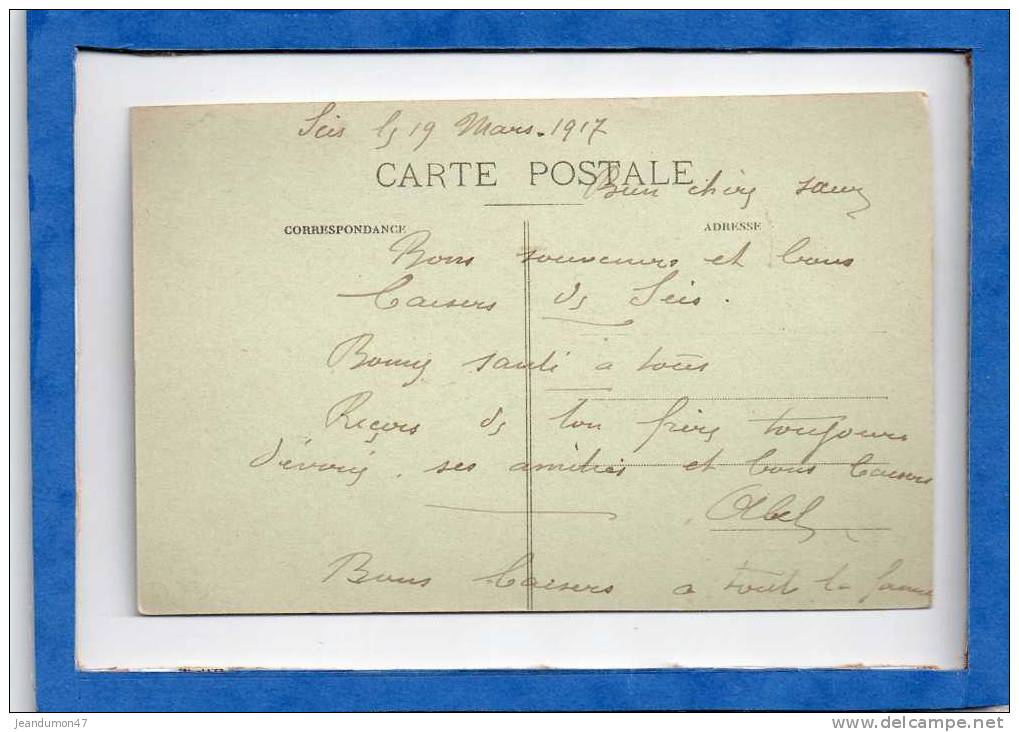 le 19 Mars. 1917
CARTE POSTALE
Bien chère sœur
CORRESPONDANCE
ADRESSE
Bons souvenirs et bons
baisers de
Bonne santé à tous
Reçois de ton frère toujours
dévoué, ses amitiés et bons baisers
Abel
Bons baisers a toute la
jeandumon47
www.delcampe.net